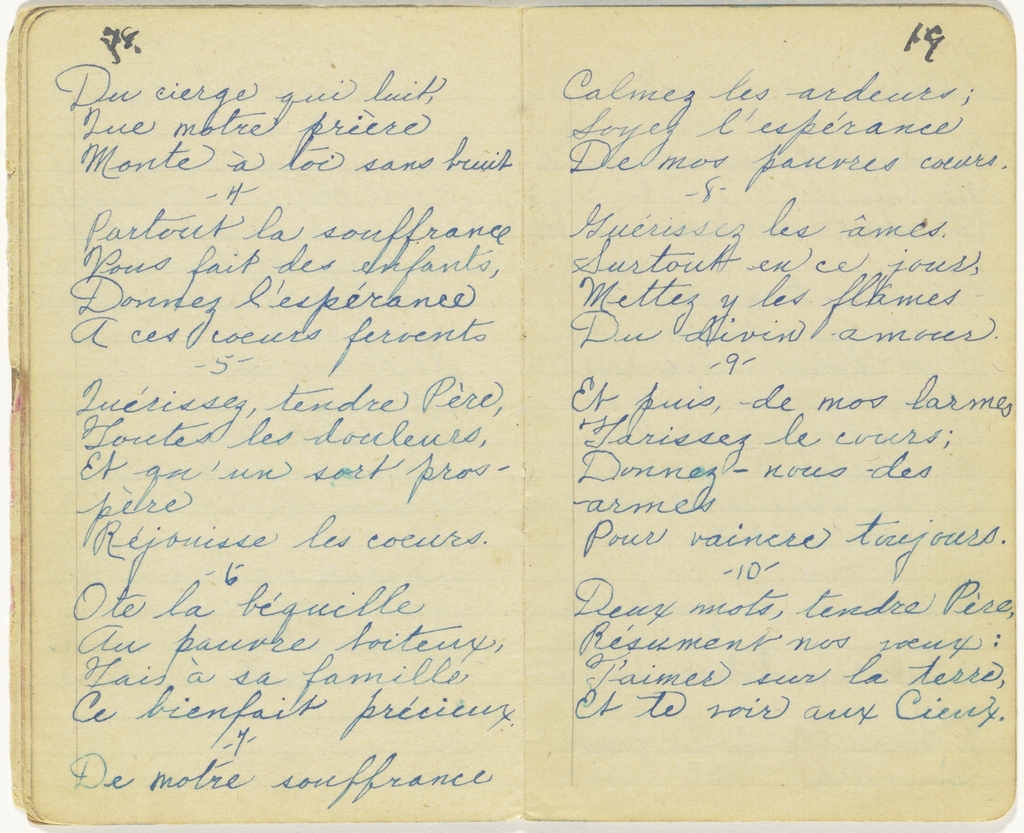 78.
Du cierge qui luit,
Que notre prière
Monte à toi sans bruit
-4-
Partout la souffrance
Vous fait des enfants,
Donnez l'espérance
A ces coeurs fervents
-5-
Guérissez, tendre Père,
Toutes les douleurs,
Et qu'un sort pros-
père
Réjouisse les coeurs.
-6-
Ote la béquille
Au pauvre boiteux,
Fais à sa famille
Ce bienfait précieux.
-7-
De notre souffrance
19
Calmez les ardeurs;
Soyez l'espérance
De nos pauvres coeurs.
-8-
Guérissez les âmes.
Surtout en ce jour,
Mettez y les flâmes
Du divin amour.
-9-
Et puis, de nos larmes
Tarissez le cours;
Donnez-nous des
armes
Pour vaincre toujours.
-10-
Deux mots, tendre Père,
Résument nos voeux:
T'aimer sur la terre,
Et te voir aux Cieux.